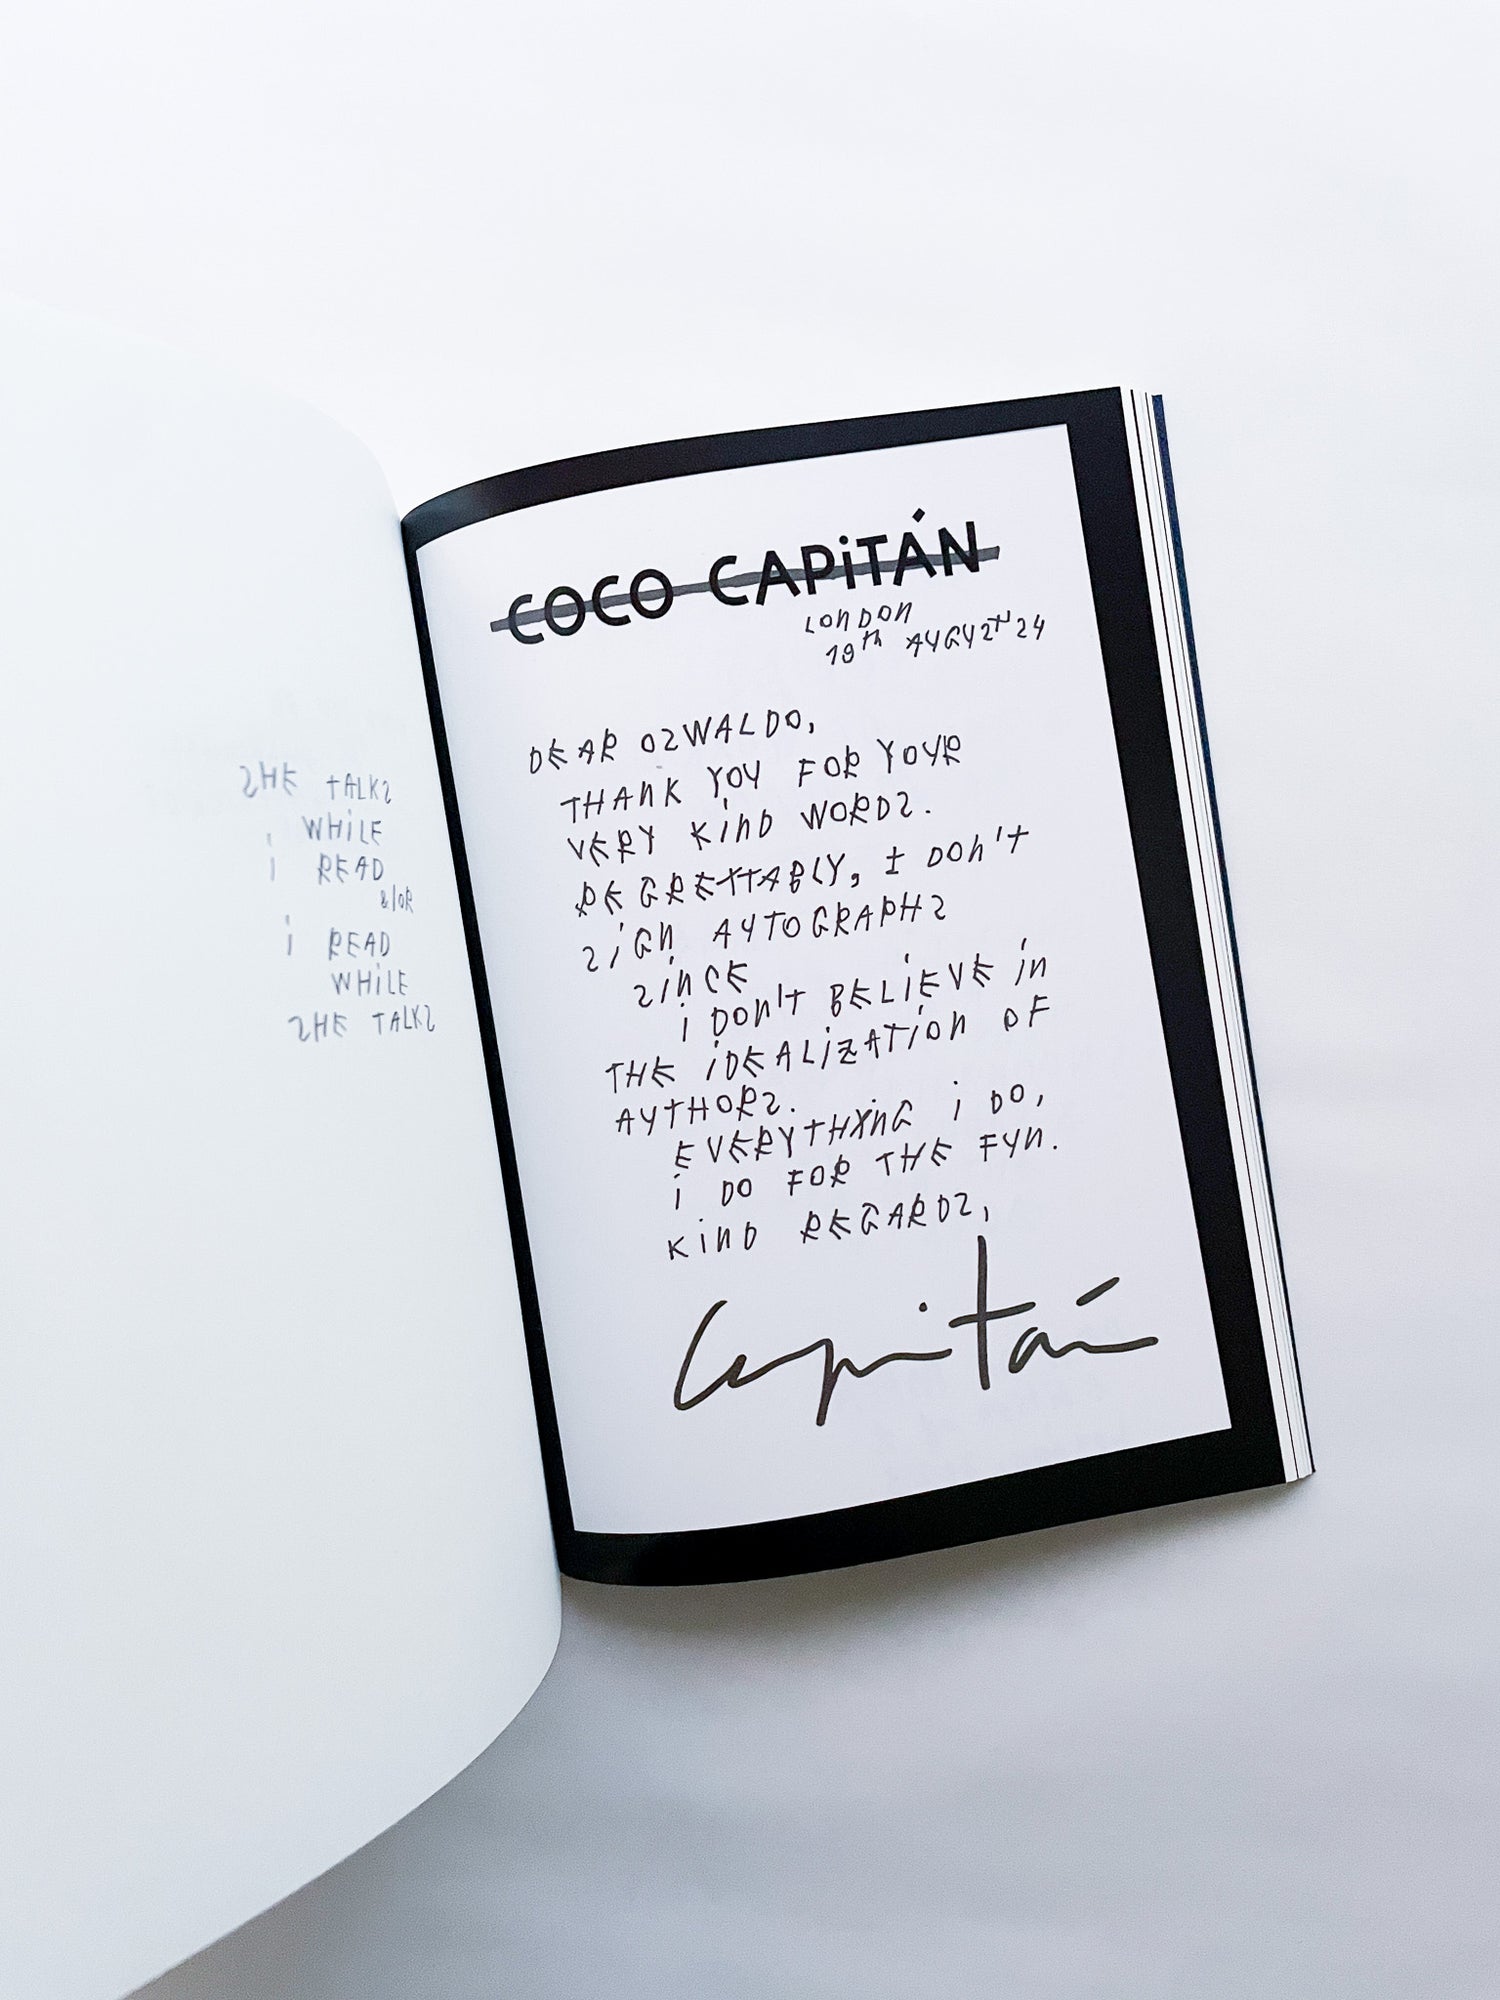 SHE TALKS
WHiLE
i READ
&/OR
i READ
WHiLE
SHE TALKS
COCO CAPiTÁN
LONDON
19th AUGUST 24
DEAR OSWALDO,
THANK YOU FOR YOUR
VERY KiND WORDS.
REGRETTABLY, I DON'T
SiGN AUTOGRAPHS
SiNCE
i DON'T BELiEVE iN
THE iDEALiZATiON OF
AUTHORS.
EVERYTHiNG i DO,
i DO FOR THE FUN.
KiND REGARDS,
Capitán